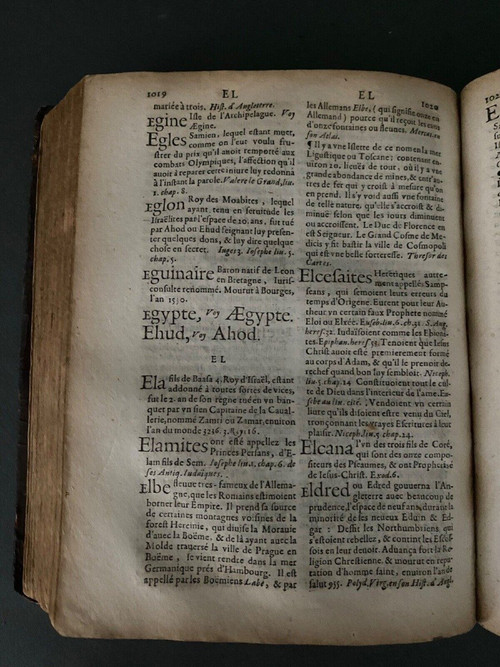 1019 EL
mariée à trois. Hist. d'Angleterre.
Egine Isle de l'Archipelague. Voy
Ægine.
Egles Samien, lequel estant muet,
comme on l'eut voulu fru-
strer du prix qu'il auoit remporté aux
combats Olympiques, l'affection qu'il
auoit à reparer cette iniure luy redonna
à l'instant la parole. Valere le Grand, liu.
1. chap. 8.
Eglon Roy des Moabites, lequel
ayant tenu en seruitude les
Israëlites par l'espace de 20. ans, fut tué
par Ahod ou Ehud feignant luy presen-
ter quelques dons, & luy dire quelque
chose en secret. Iuges 3. Iosephe liu. 5.
chap. 5.
Eguinaire Baron natif de Leon
en Bretagne, Iuris-
consulte renommé. Mourut à Bourges,
l'an 1550.
Egypte, Voy Ægypte.
Ehud, Voy Ahod.
EL
Ela fils de Baasa 4. Roy d'Israël, estant
addonné à toutes sortes de vices,
fut le 2. an de son regne tué en vn ban-
quet par vn sien Capitaine de la Caual-
lerie, nommé Zamri ou Zamar, enuiron
l'an du monde 3216. 3. Roys 16.
Elamites ont esté appellez les
Princes Persans, d'E-
lam fils de Sem. Iosephe liu. 1. chap. 6. de
ses Antiq. Iudaïques.
Elbe fleuue tres-fameux de l'Allema-
gne, que les Romains estimoient
borner leur Empire. Il prend sa source
de certaines montagnes voisines de la
forest Hercinie, qui diuise la Morauie
d'auec la Boëme, & de là ayant auec la
Molde trauersé la ville de Prague en
Boëme, se vient rendre dans la mer
Germanique prés d'Hambourg. Il est
appellé par les Boëmiens Labe, & par
EL 1020
les Allemans Elbe, (qui signifie onze en
Allemand) pource qu'il reçoit les eaux
d'onze fontaines ou fleuues. Mercator en
son Atlas.
¶ Il y a vne Islette de ce nom en la mer
Ligustique ou Toscane: contenant en-
uiron 20. lieuës de tour, où il y a vne
grande abondance de mines, & entr'au-
tres de fer qui y croist à mesure qu'on
en prend. Il s'y void aussi vne fontaine
de telle nature, qu'elle s'accroist & di-
minuë selon que les iours diminuent
ou accroissent. Le Duc de Florence en
est Seigneur. Le Grand Cosme de Me-
dicis y fit bastir la ville de Cosmopoli
qui est vne belle forteresse. Thresor des
Cartes.
Elcesaites Heretiques autre-
ment appellez Samp-
seans, qui semerent leurs erreurs du
temps d'Origene. Eurent pour leur Au-
theur vn certain faux Prophete nommé
Eloi ou Elxée. Euseb. liu. 6. ch. 31. S. Aug.
heres. 32. Iudaïsoient comme les Ebioni-
tes. Epiphan. heres. 53. Tenoient que Iesus
Christ auoit esté premierement formé
au corps d'Adam, & qu'il le prenoit de-
rechef quand bon luy sembloit. Niceph.
liu. 5. chap. 24. Constituoient tout le cul-
te de Dieu dans l'interieur de l'ame. Eu-
sebe au lieu cité. Vendoient vn certain
liure qu'ils disoient estre venu du Ciel,
tronçonnant les vrayes Escritures à leur
plaisir. Niceph. liu. 5. chap. 24.
Elcana l'vn des trois fils de Coré,
qui sont des onze compo-
siteurs des Pseaumes, & ont Prophetisé
de Iesus-Christ. Exod. 6.
Eldred ou Edred gouuerna l'An-
gleterre auec beaucoup de
prudence, l'espace de neuf ans, durant la
minorité de ses neueux Eduin & Ed-
gar: Desfit les Northumbriens qui
s'estoient rebellez, & contint les Escos-
sois en leur deuoir. Aduança fort la Re-
ligion Chrestienne. & mourut en repu-
tation d'homme saint, enuiron l'an de
salut 955. Polyd. Virg. en son Hist. d'Angl.